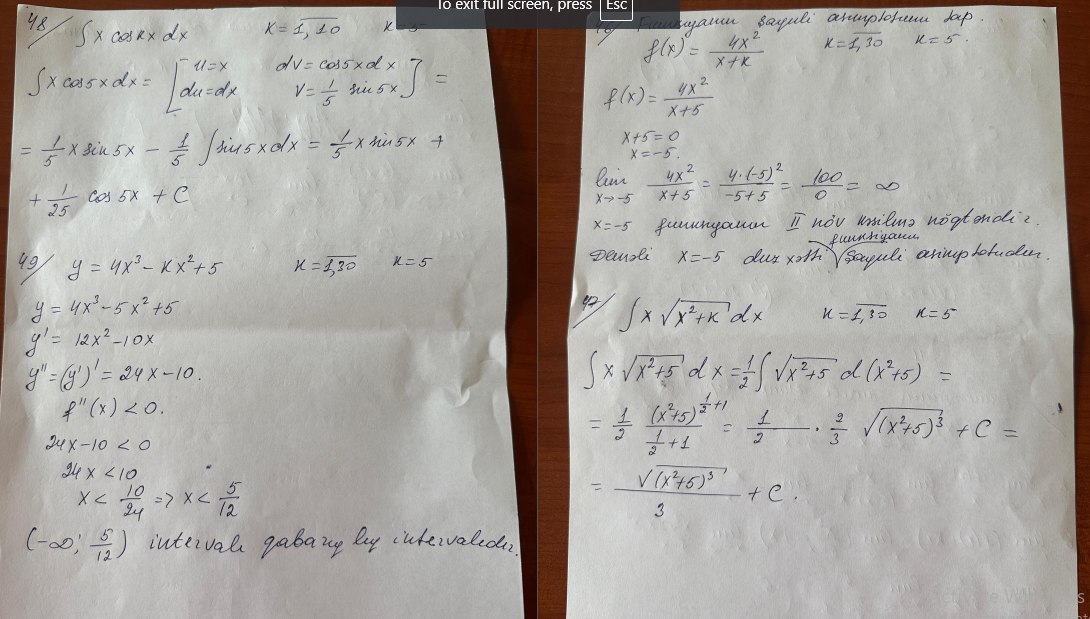 To exit full screen, press Esc
48/ ∫ x cos kx dx K = 1,10 K = 5
∫ x cos 5x dx = [ u = x dv = cos 5x dx
du = dx v = 1/5 sin 5x ] =
= 1/5 x sin 5x - 1/5 ∫ sin 5x dx = 1/5 x sin 5x +
+ 1/25 cos 5x + C
49/ y = 4x³ - kx² + 5 K = 1,30 K = 5
y = 4x³ - 5x² + 5
y' = 12x² - 10x
y'' = (y')' = 24x - 10.
f''(x) < 0.
24x - 10 < 0
24x < 10
x < 10/24 => x < 5/12
(-∞; 5/12) intervalı qabarıqlıq intervalıdır.
Funksiyanın şaquli asimptotunu tap.
f(x) = 4x²/(x+k) K = 1,30 K = 5.
f(x) = 4x²/(x+5)
x+5=0
x=-5.
lim x→-5 4x²/(x+5) = 4·(-5)²/(-5+5) = 100/0 = ∞
x=-5 funksiyanın II növ kəsilmə nöqtəsidir.
Deməli x=-5 düz xətti funksiyanın şaquli asimptotudur.
47/ ∫ x √(x²+k) dx K = 1,30 K = 5
∫ x √(x²+5) dx = 1/2 ∫ √(x²+5) d(x²+5) =
= 1/2 (x²+5)^(1/2+1)/(1/2+1) = 1/2 · 2/3 √(x²+5)³ + C =
= √(x²+5)³/3 + C.